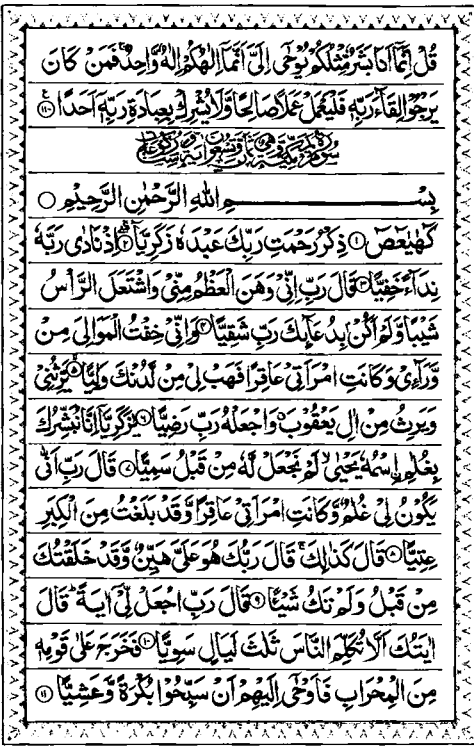 قُلْ اِنَّمَاۤ اَنَا بَشَرٌ مِّثْلُكُمْ یُوْحٰۤى اِلَیَّ اَنَّمَاۤ اِلٰهُكُمْ اِلٰهٌ وَّاحِدٌ ۚ فَمَنْ كَانَ
یَرْجُوْا لِقَآءَ رَبِّهٖ فَلْیَعْمَلْ عَمَلًا صَالِحًا وَّلَا یُشْرِكْ بِعِبَادَةِ رَبِّهٖۤ اَحَدًا ۝۱۱۰
سُوْرَةُ مَرْیَمَ مَكِّیَّةٌ
بِسْمِ اللهِ الرَّحْمٰنِ الرَّحِیْمِ ۝
كٓهٰیٰعٓصٓ ۝۱ ذِكْرُ رَحْمَتِ رَبِّكَ عَبْدَهٗ زَكَرِیَّا ۝۲ اِذْ نَادٰى رَبَّهٗ
نِدَآءً خَفِیًّا ۝۳ قَالَ رَبِّ اِنِّیْ وَهَنَ الْعَظْمُ مِنِّیْ وَاشْتَعَلَ الرَّاْسُ
شَیْبًا وَّلَمْ اَكُنْۢ بِدُعَآئِكَ رَبِّ شَقِیًّا ۝۴ وَاِنِّیْ خِفْتُ الْمَوَالِیَ مِنْ
وَّرَآءِیْ وَكَانَتِ امْرَاَتِیْ عَاقِرًا فَهَبْ لِیْ مِنْ لَّدُنْكَ وَلِیًّا ۝۵ یَّرِثُنِیْ
وَیَرِثُ مِنْ اٰلِ یَعْقُوْبَ وَاجْعَلْهُ رَبِّ رَضِیًّا ۝۶ یٰزَكَرِیَّاۤ اِنَّا نُبَشِّرُكَ
بِغُلٰمِ اِسْمُهٗ یَحْیٰى لَمْ نَجْعَلْ لَّهٗ مِنْ قَبْلُ سَمِیًّا ۝۷ قَالَ رَبِّ اَنّٰى
یَكُوْنُ لِیْ غُلٰمٌ وَّكَانَتِ امْرَاَتِیْ عَاقِرًا وَّقَدْ بَلَغْتُ مِنَ الْكِبَرِ
عِتِیًّا ۝۸ قَالَ كَذٰلِكَ ۚ قَالَ رَبُّكَ هُوَ عَلَیَّ هَیِّنٌ وَّقَدْ خَلَقْتُكَ
مِنْ قَبْلُ وَلَمْ تَكُ شَیْئًا ۝۹ قَالَ رَبِّ اجْعَلْ لِّیْۤ اٰیَةً ۚ قَالَ
اٰیَتُكَ اَلَّا تُكَلِّمَ النَّاسَ ثَلٰثَ لَیَالٍ سَوِیًّا ۝۱۰ فَخَرَجَ عَلٰى قَوْمِهٖ
مِنَ الْمِحْرَابِ فَاَوْحٰۤى اِلَیْهِمْ اَنْ سَبِّحُوْا بُكْرَةً وَّعَشِیًّا ۝۱۱